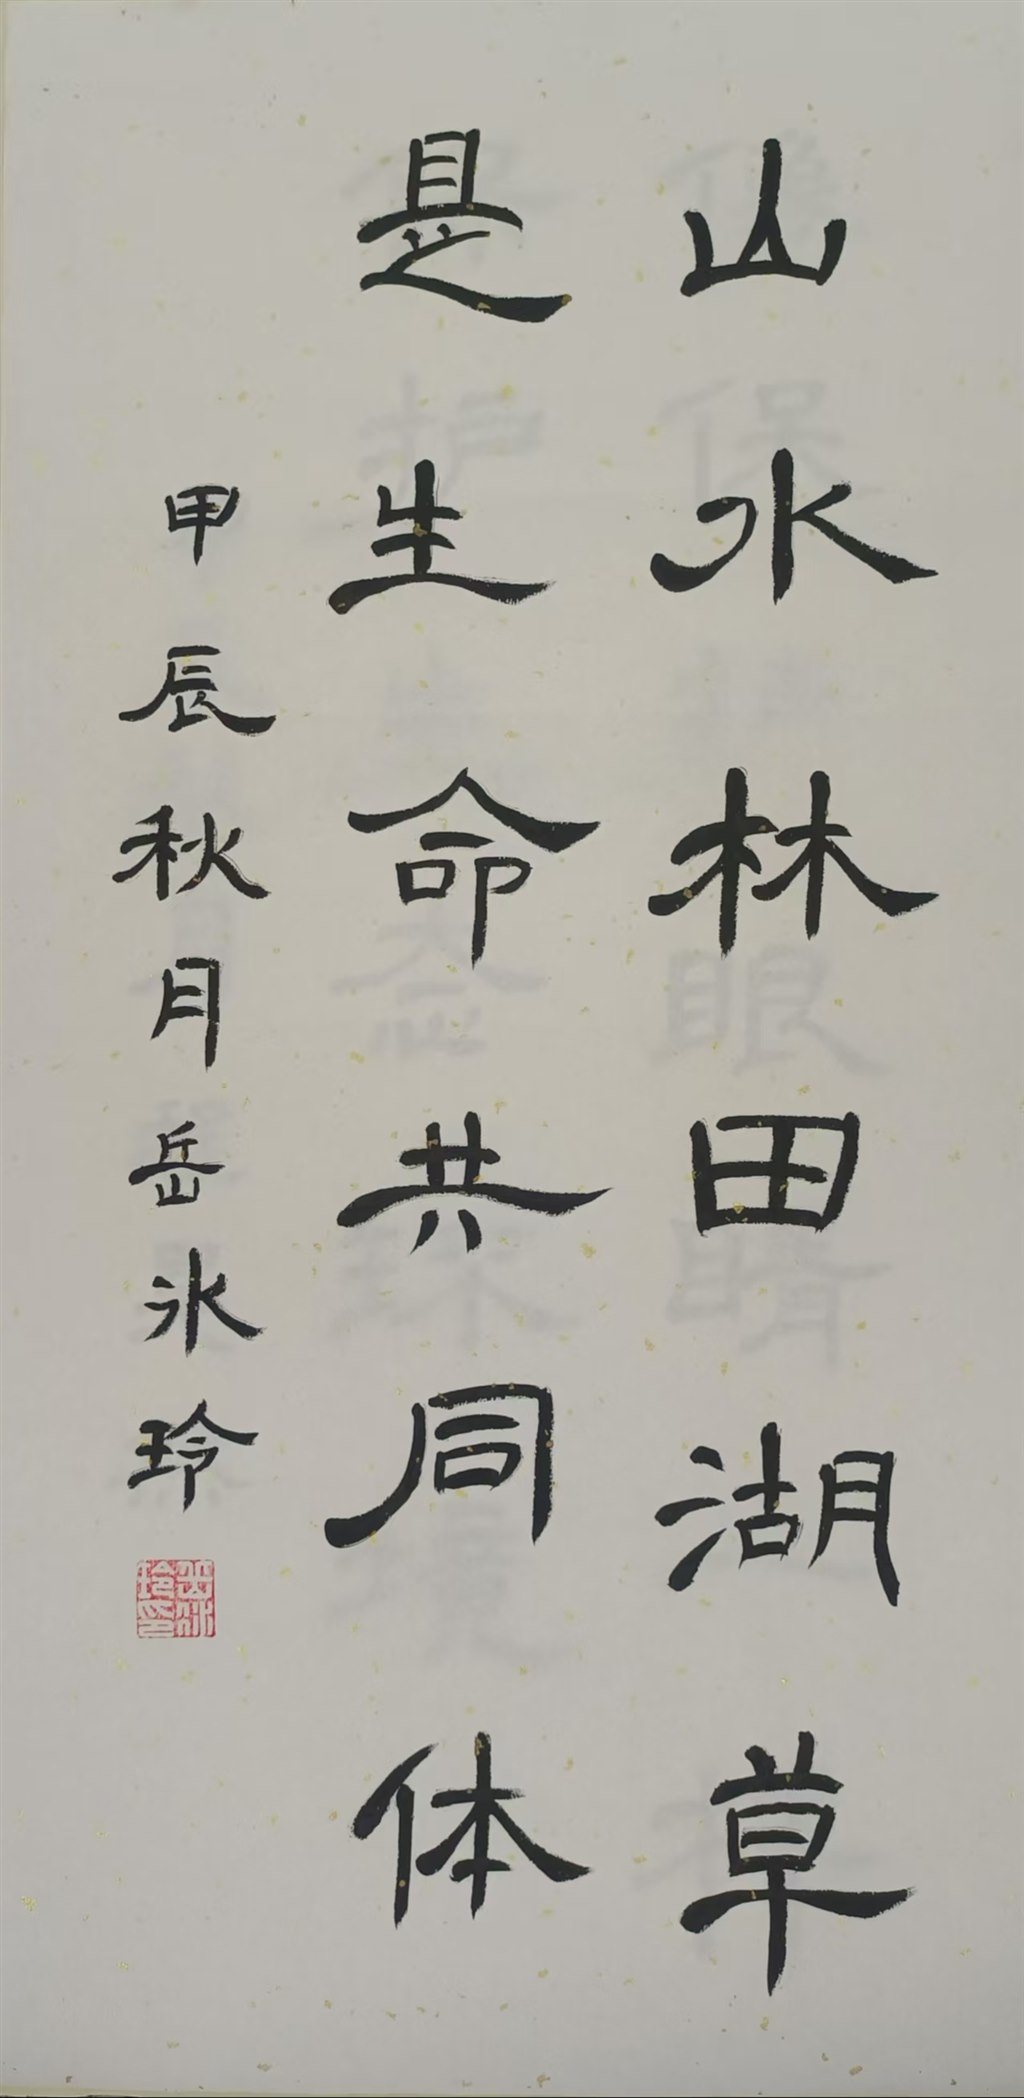 山水林田湖草
是生命共同体
甲辰秋月岳冰玲